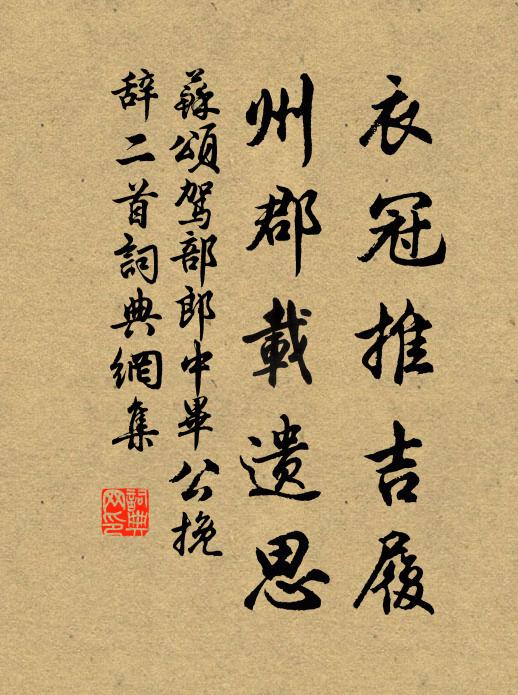 衣冠推吉履
州郡載遗思
蘇頌駕部郎中畢公挽
辞二首詞典網集
詞典网印